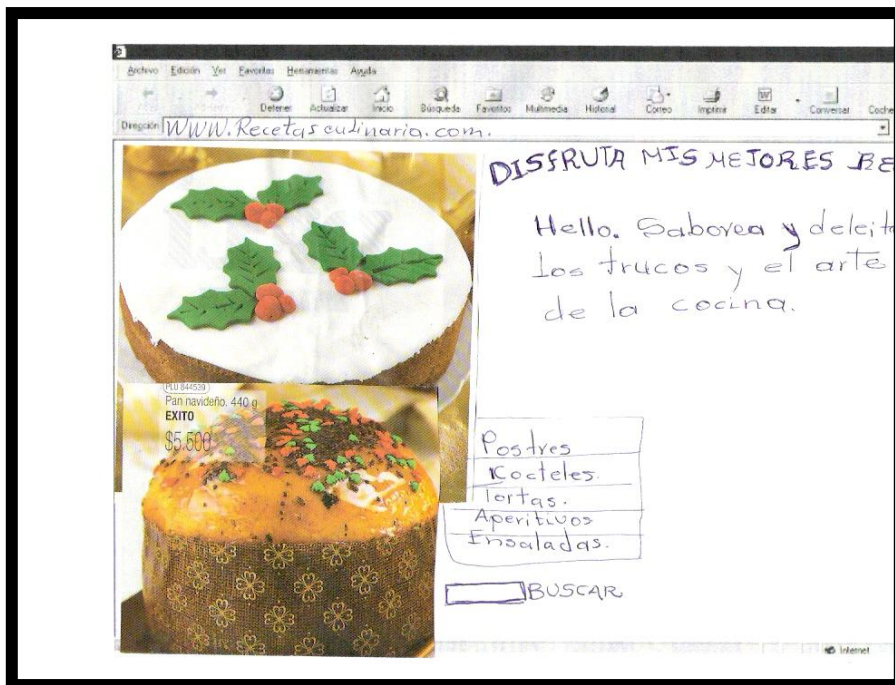 Archivo Edición Ver Favoritos Herramientas Ayuda
Detener Actualizar Inicio Búsqueda Favoritos Multimedia Historial Correo Imprimir Editar Conversar Coche
Dirección WWW.Recetasculinaria.com.
DISFRUTA MIS MEJORES RE
Hello. Saborea y deleita
los trucos y el arte
de la cocina.
PLU 844539
Pan navideño. 440 g
EXITO
$5.500
Postres
Kocteles.
Tortas.
Aperitivos
Ensaladas.
BUSCAR
Internet